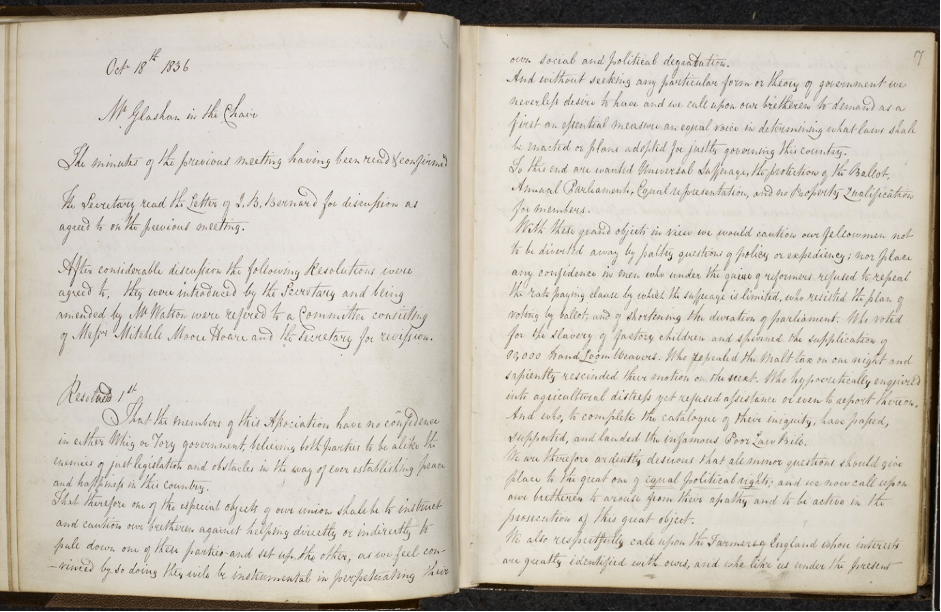 Oct 18th 1836
Mr Glashan in the Chair
The minutes of the previous meeting having been read & confirmed
The Secretary read the Letter of J. B. Bernard for discussion as
agreed to on the previous meeting.
After considerable discussion the following Resolutions were
agreed to, they were introduced by the Secretary and being
amended by Mr Watson were refered to a Committee consisting
of Messrs Mitchele Moore Hoare and the Secretary for revission.
Resolved 1st
That the members of this Association have no confidence
in either Whig or Tory government, believing both parties to be alike the
enemies of just legislation and obstacles in the way of ever establishing peace
and happiness in this country.
That therefore one of the especial objects of our union shall be to instruct
and caution our bretheren against helping directly or indirectly to
pull down one of these parties and set up the other, as we feel con-
-vinced by so doing they will be instrumental in perpetuating their
7
own social and political degradation.
And without seeking any particular form or theory of government we
neverless desire to have and we call upon our bretheren to demand as a
first an essential measure an equal voice in determining what laws shall
be enacted or plans adopted for justly governing this country.
To this end are wanted Universal Suffrage, the protection of the Ballot,
Annual Parliaments, Equal representation, and no Property Qualification
for members.
With these grand objects in view we would caution our fellowmen not
to be diverted away by paltry questions of policy or expediency; nor place
any confidence in men who under the guise of reformers refused to repeal
the rate paying clause by which the suffrage is limited, who resisted the plan of
voting by ballot, and of shortening the duration of parliament. Who voted
for the slavery of factory children and spurned the supplication of
Hand Loom Weavers. Who repealed the Malt tax on one night and
sapiently rescinded their motion on the next. Who hypocritically enquired
into agricultural distress yet refused assistance or even to report thereon.
And who, to complete the catalogue of their iniquity, have passed,
supported, and lauded the infamous Poor Law Bill.
We are therefore ardently desirous that all minor questions should give
place to the great one of equal political rights; and we now call upon
our bretheren to arouse from their apathy and to be active in the
prosecution of this great object.
We also respectfully call upon the Farmers of England whose interests
are greatly identified with ours, and who like us under the present